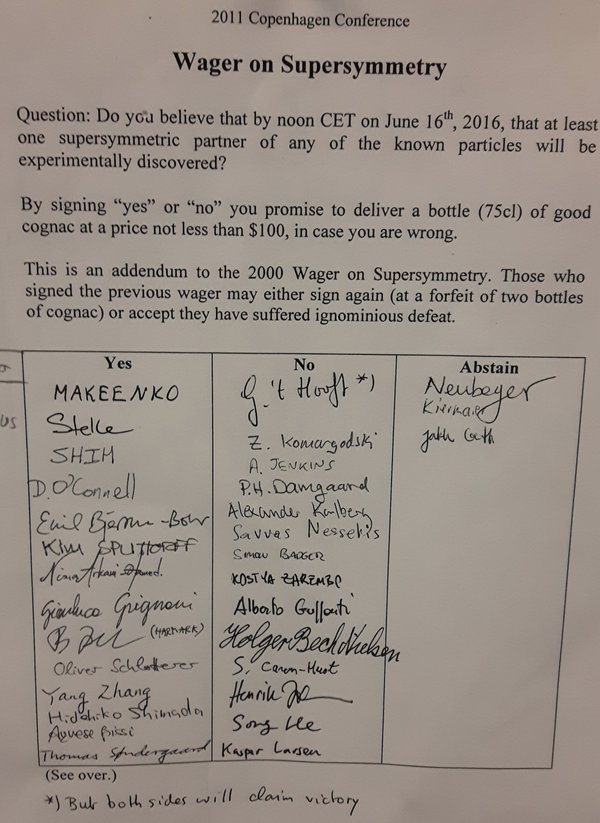 2011 Copenhagen Conference
Wager on Supersymmetry
Question: Do you believe that by noon CET on June 16th, 2016, that at least
one supersymmetric partner of any of the known particles will be
experimentally discovered?
By signing “yes” or “no” you promise to deliver a bottle (75cl) of good
cognac at a price not less than $100, in case you are wrong.
This is an addendum to the 2000 Wager on Supersymmetry. Those who
signed the previous wager may either sign again (at a forfeit of two bottles
of cognac) or accept they have suffered ignominious defeat.
Yes
MAKEENKO
Stelle
SHIH
D. O'Connell
Emil Bjerrum-Bohr
KIM SPLITTORFF
Nima Arkani-Hamed
Gianluca Grignani
(HARMARK)
Oliver Schlotterer
Yang Zhang
Hidehiko Shimada
Agnese Bissi
Thomas Søndergaard
No
G. 't Hooft *)
Z. Komargodski
A. JENKINS
P.H. Damgaard
Alexander
Savvas Nesseris
Simon BADGER
KOSTYA ZAREMBO
Alberto Guffanti
Holger Bech Nielsen
S. Caron-Huot
Henrik
Song He
Kasper Larsen
Abstain
Neubeyer
Kiermaier
us
(See over.)
*) But both sides will claim victory